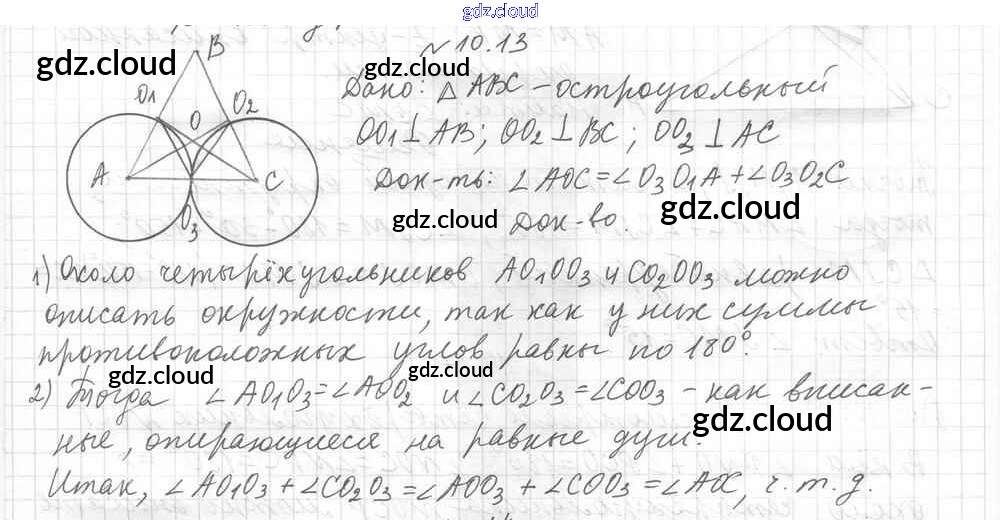 gdz.cloud
№ 10.13
B
gdz.cloud
gdz.cloud
Дано: △ ABC – остроугольный
O1 O O2
OO1 ⊥ AB; OO2 ⊥ BC; OO3 ⊥ AC
A C
Док-ть: ∠AOC = ∠O3O1A + ∠O3O2C
gdz.cloud
gdz.cloud
O3
Док-во.
1) Около четырёхугольников AO1OO3 и CO2OO3 можно
описать окружности, так как у них суммы
противоположных углов равны по 180°.
gdz.cloud
gdz.cloud
2) Тогда ∠AO1O3 = ∠AOO2 и ∠CO2O3 = ∠COO3 – как вписан-
gdz.cloud
ные, опирающиеся на равные дуги.
Итак, ∠AO1O3 + ∠CO2O3 = ∠AOO3 + ∠COO3 = ∠AOC, ч.т.д.